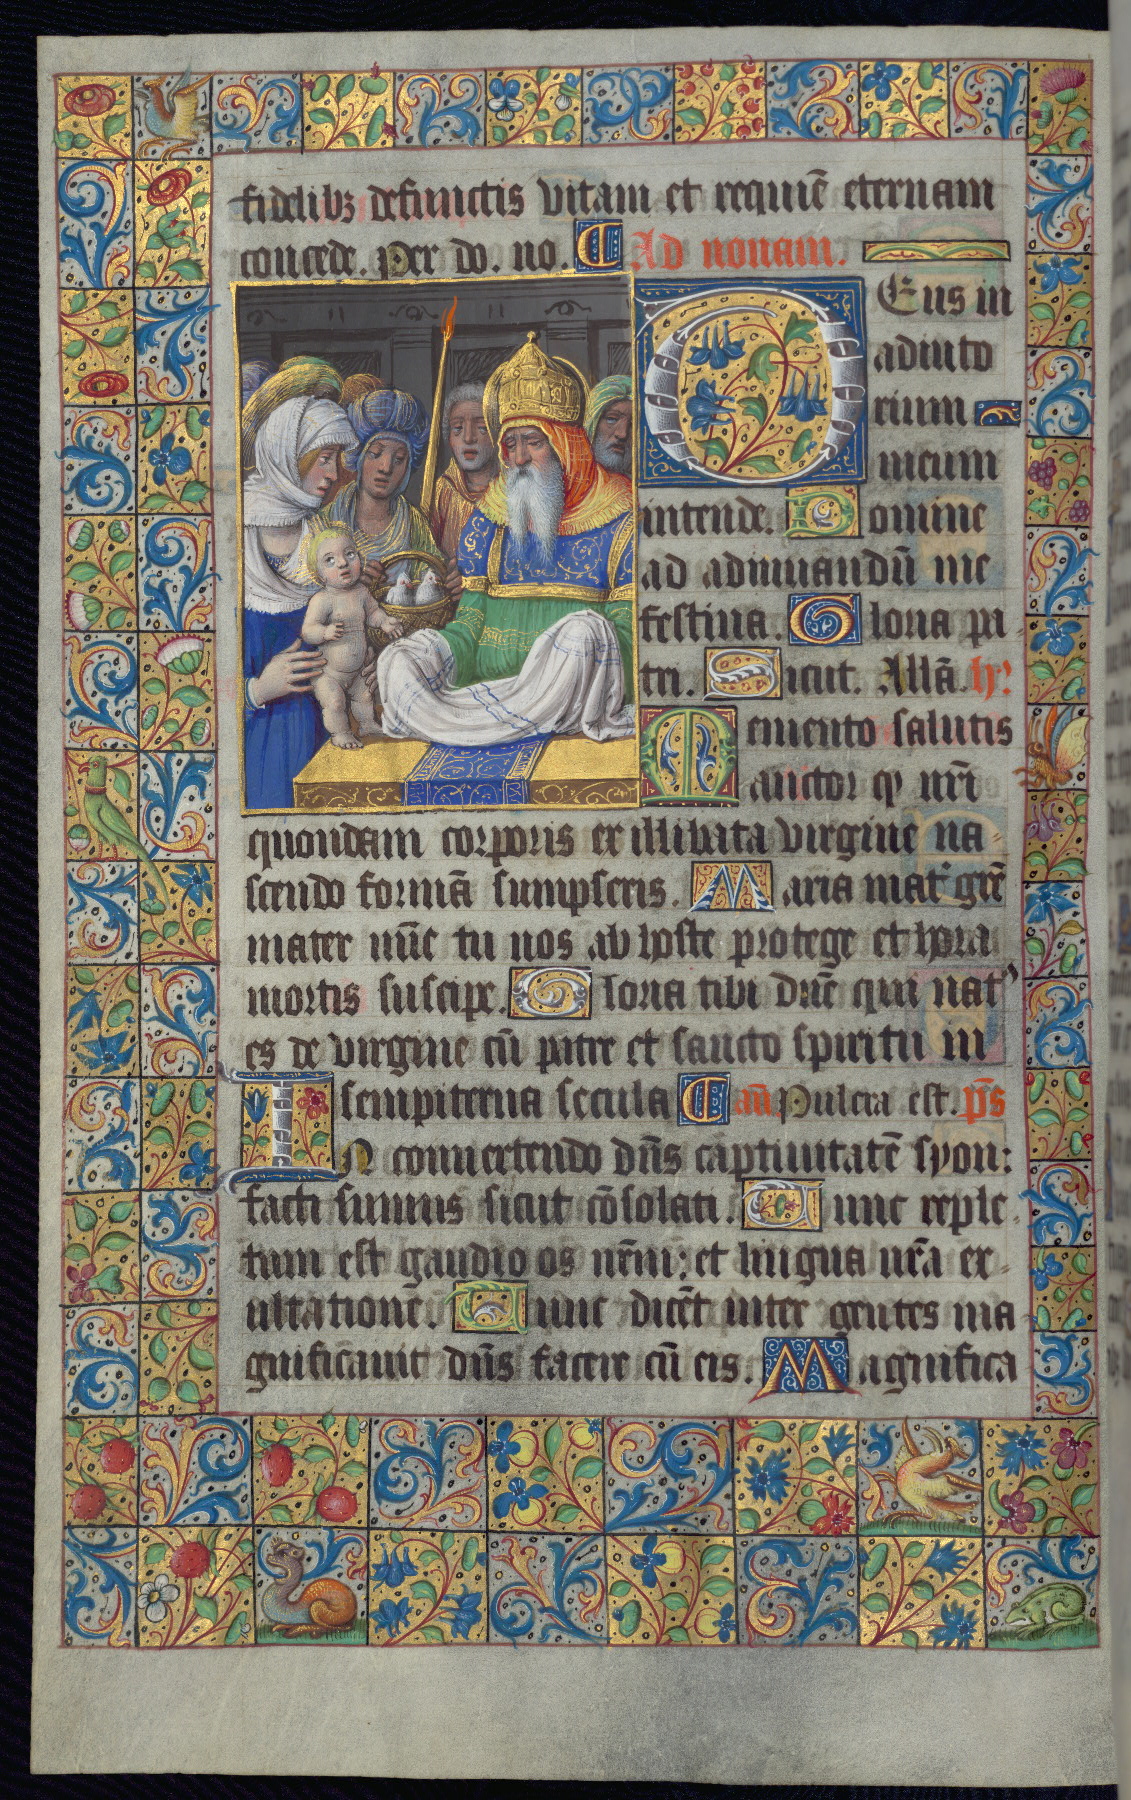 fidelibꝫ defunctis vitam et requiē eternam
concede. Per do. no. Ad nonam.
Deus in
adiuto
rium
meum
intende. Domine
ad adiuuandū me
festina. Gloria pa
tri. Sicut. Allā. hꝰ
Memento salutis
auctor ꝙ nr̄i
quondam corporis ex illibata virgine na
scendo formā sumpseris. Maria mat᷒ gr̄e
mater mīe tu nos ab hoste protege et hora
mortis suscipe. Gloria tibi dn̄e qui nat᷒
es de virgine cū patre et sancto spiritu in
sempiterna secula an̄ Pulcra est. p̄s
In conuertendo dn̄s captiuitatē syon:
facti sumus sicut cōsolati. Tunc reple
tum est gaudio os nr̄m: et lingua nr̄a ex
ultatione. Tunc dicēt inter gentes ma
gnificauit dn̄s facere cū eis. Magnifica